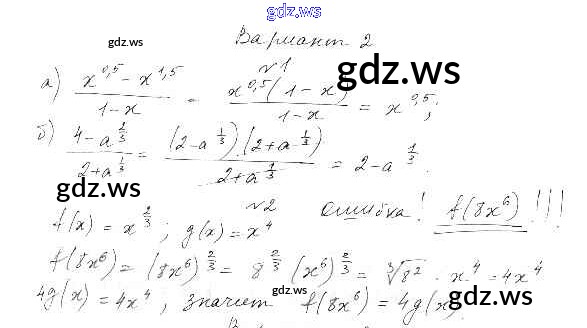 gdz.ws
gdz.ws
Вариант 2
№1
gdz.ws
а) (x^0,5 - x^1,5)/(1-x) = x^0,5(1-x)/(1-x) = x^0,5;
б) (4-a^(2/3))/(2+a^(1/3)) = (2-a^(1/3))(2+a^(1/3))/(2+a^(1/3)) = 2-a^(1/3).
gdz.ws
№2 ошибка! f(8x^6)!!!
f(x) = x^(2/3); g(x) = x^4
f(8x^6) = (8x^6)^(2/3) = 8^(2/3) (x^6)^(2/3) = ∛8^2 · x^4 = 4x^4
gdz.ws
gdz.ws
4g(x) = 4x^4, значит f(8x^6) = 4g(x)